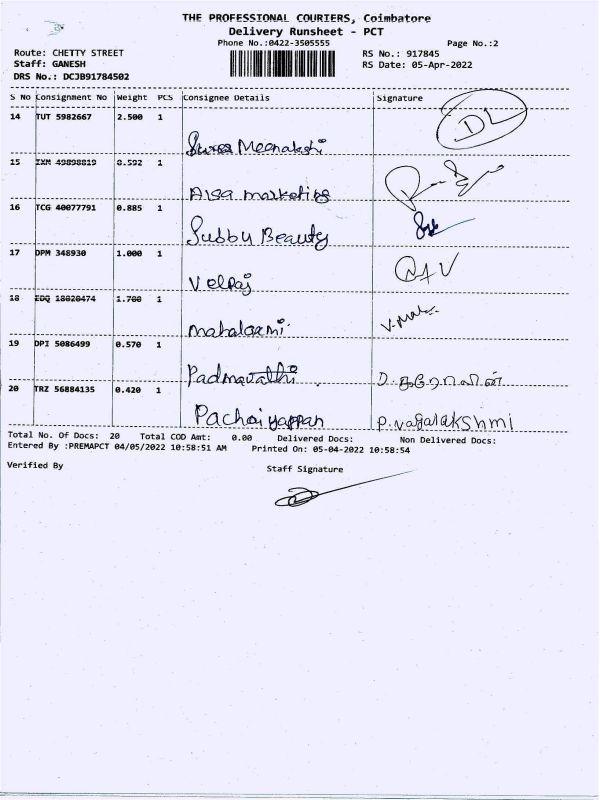 THE PROFESSIONAL COURIERS, Coimbatore
Delivery Runsheet - PCT
Phone No.:0422-3505555
Page No.:2
Route: CHETTY STREET
RS No.: 917845
Staff: GANESH
RS Date: 05-Apr-2022
DRS No.: DCJB91784502
S No Consignment No Weight PCS Consignee Details Signature
14 TUT 5982667 2.500 1 DL
Meenakshi
15 IXM 49898819 0.592 1
Alsa marketing
16 TCG 40077791 0.885 1
Subbu Beauty
17 DPM 348930 1.000 1
Velraj
18 EDQ 18020474 1.700 1
mahalaxmi
19 DPI 5086499 0.570 1
Padmavathi D.
20 TRZ 56884135 0.420 1
Pachaiyappan P. nagalakshmi
Total No. Of Docs: 20 Total COD Amt: 0.00 Delivered Docs: Non Delivered Docs:
Entered By :PREMAPCT 04/05/2022 10:58:51 AM Printed On: 05-04-2022 10:58:54
Verified By Staff Signature